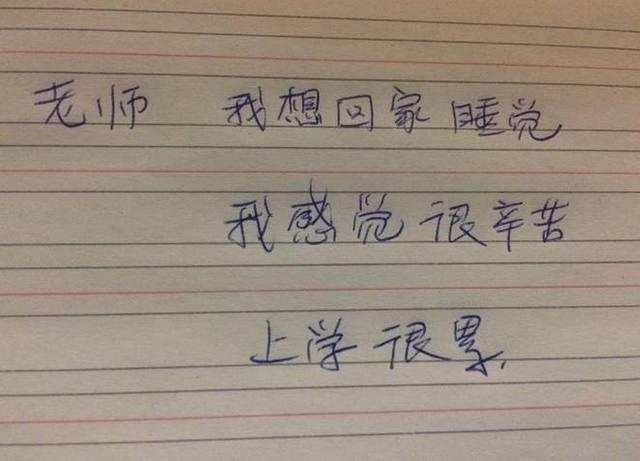 老师 我想回家睡觉
我感觉很辛苦
上学很累.